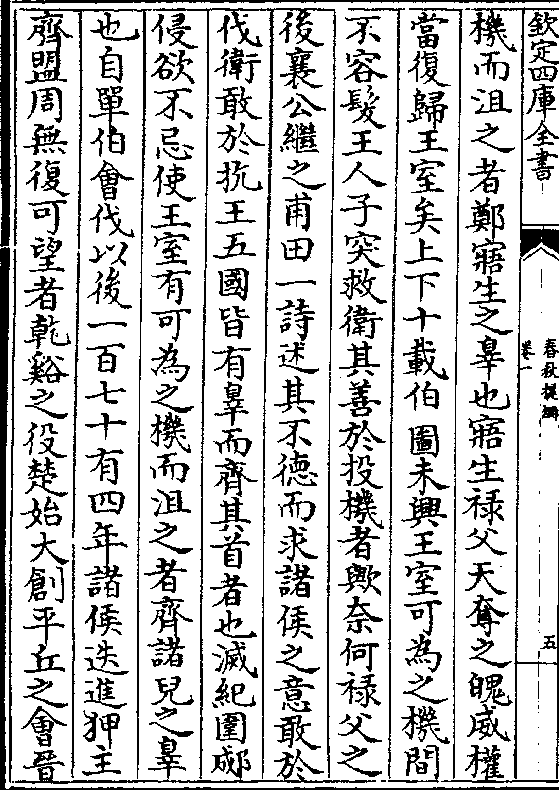 欽定四庫全書
春秋提綱
卷一
五
機而沮之者鄭寤生之辠也寤生禄父天奪之魄威權
當復歸王室矣上下十載伯圖未興王室可為之機間
不容髪王人子突救衛其善於投機者歟奈何禄父之
後襄公繼之甫田一詩述其不德而求諸侯之意敢於
伐衛敢於抗王五國皆有辠而齊其首者也滅紀圍郕
侵欲不忌使王室有可為之機而沮之者齊諸兒之辠
也自單伯會伐以後一百七十有四年諸侯迭進狎主
齊盟周無復可望者乾谿之役楚始大創平丘之會晉